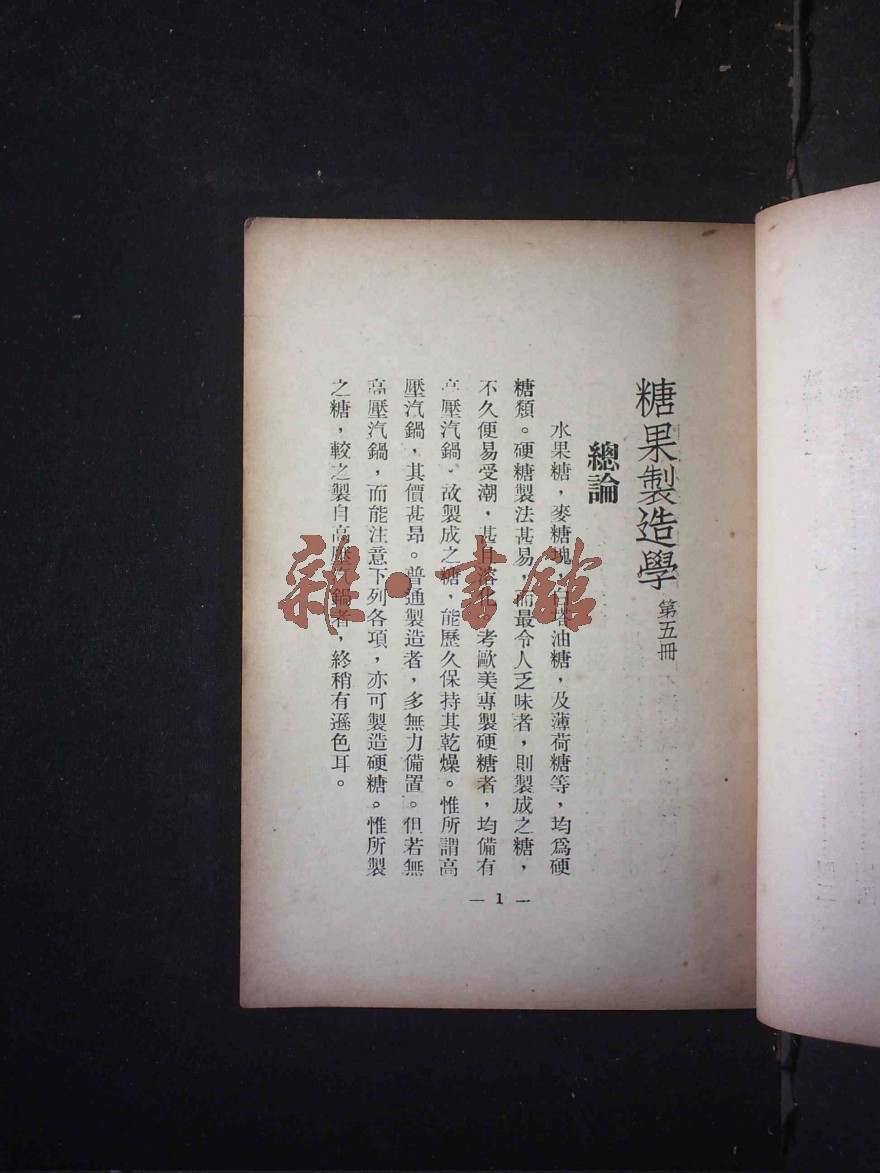 糖果製造學 第五冊
總論
水果糖，麥糖塊，白塔油糖，及薄荷糖等，均爲硬
糖類。硬糖製法甚易，而最令人乏味者，則製成之糖，
不久便易受潮，甚且溶化。考歐美專製硬糖者，均備有
高壓汽鍋。故製成之糖，能歷久保持其乾燥。惟所謂高
壓汽鍋，其價甚昂。普通製造者，多無力備置。但若無
高壓汽鍋，而能注意下列各項，亦可製造硬糖。惟所製
之糖，較之製自高壓汽鍋者，終稍有遜色耳。
— 1 —
雜·書館